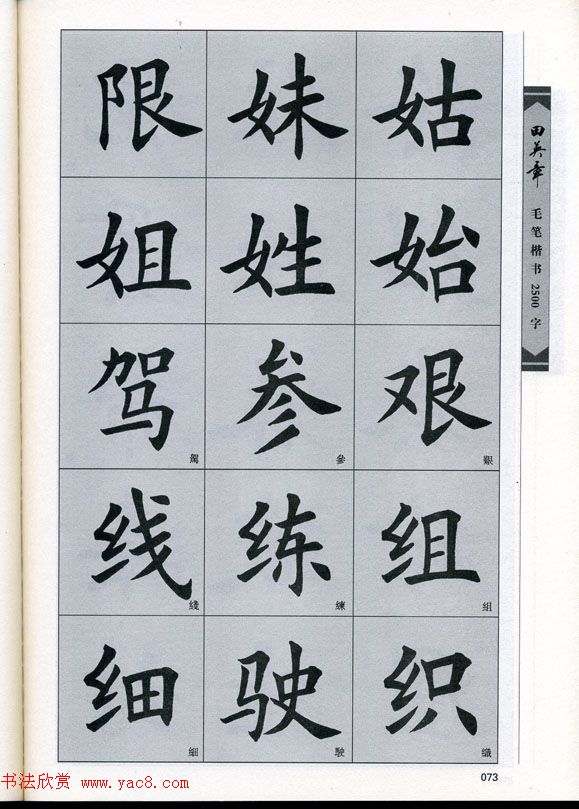 限妹姑
姐姓始
驾参艰
駕 參 艱
线练组
綫 練 組
细驶织
細 駛 織
田英章
毛笔楷书2500字
073
书法欣赏 www.yac8.com